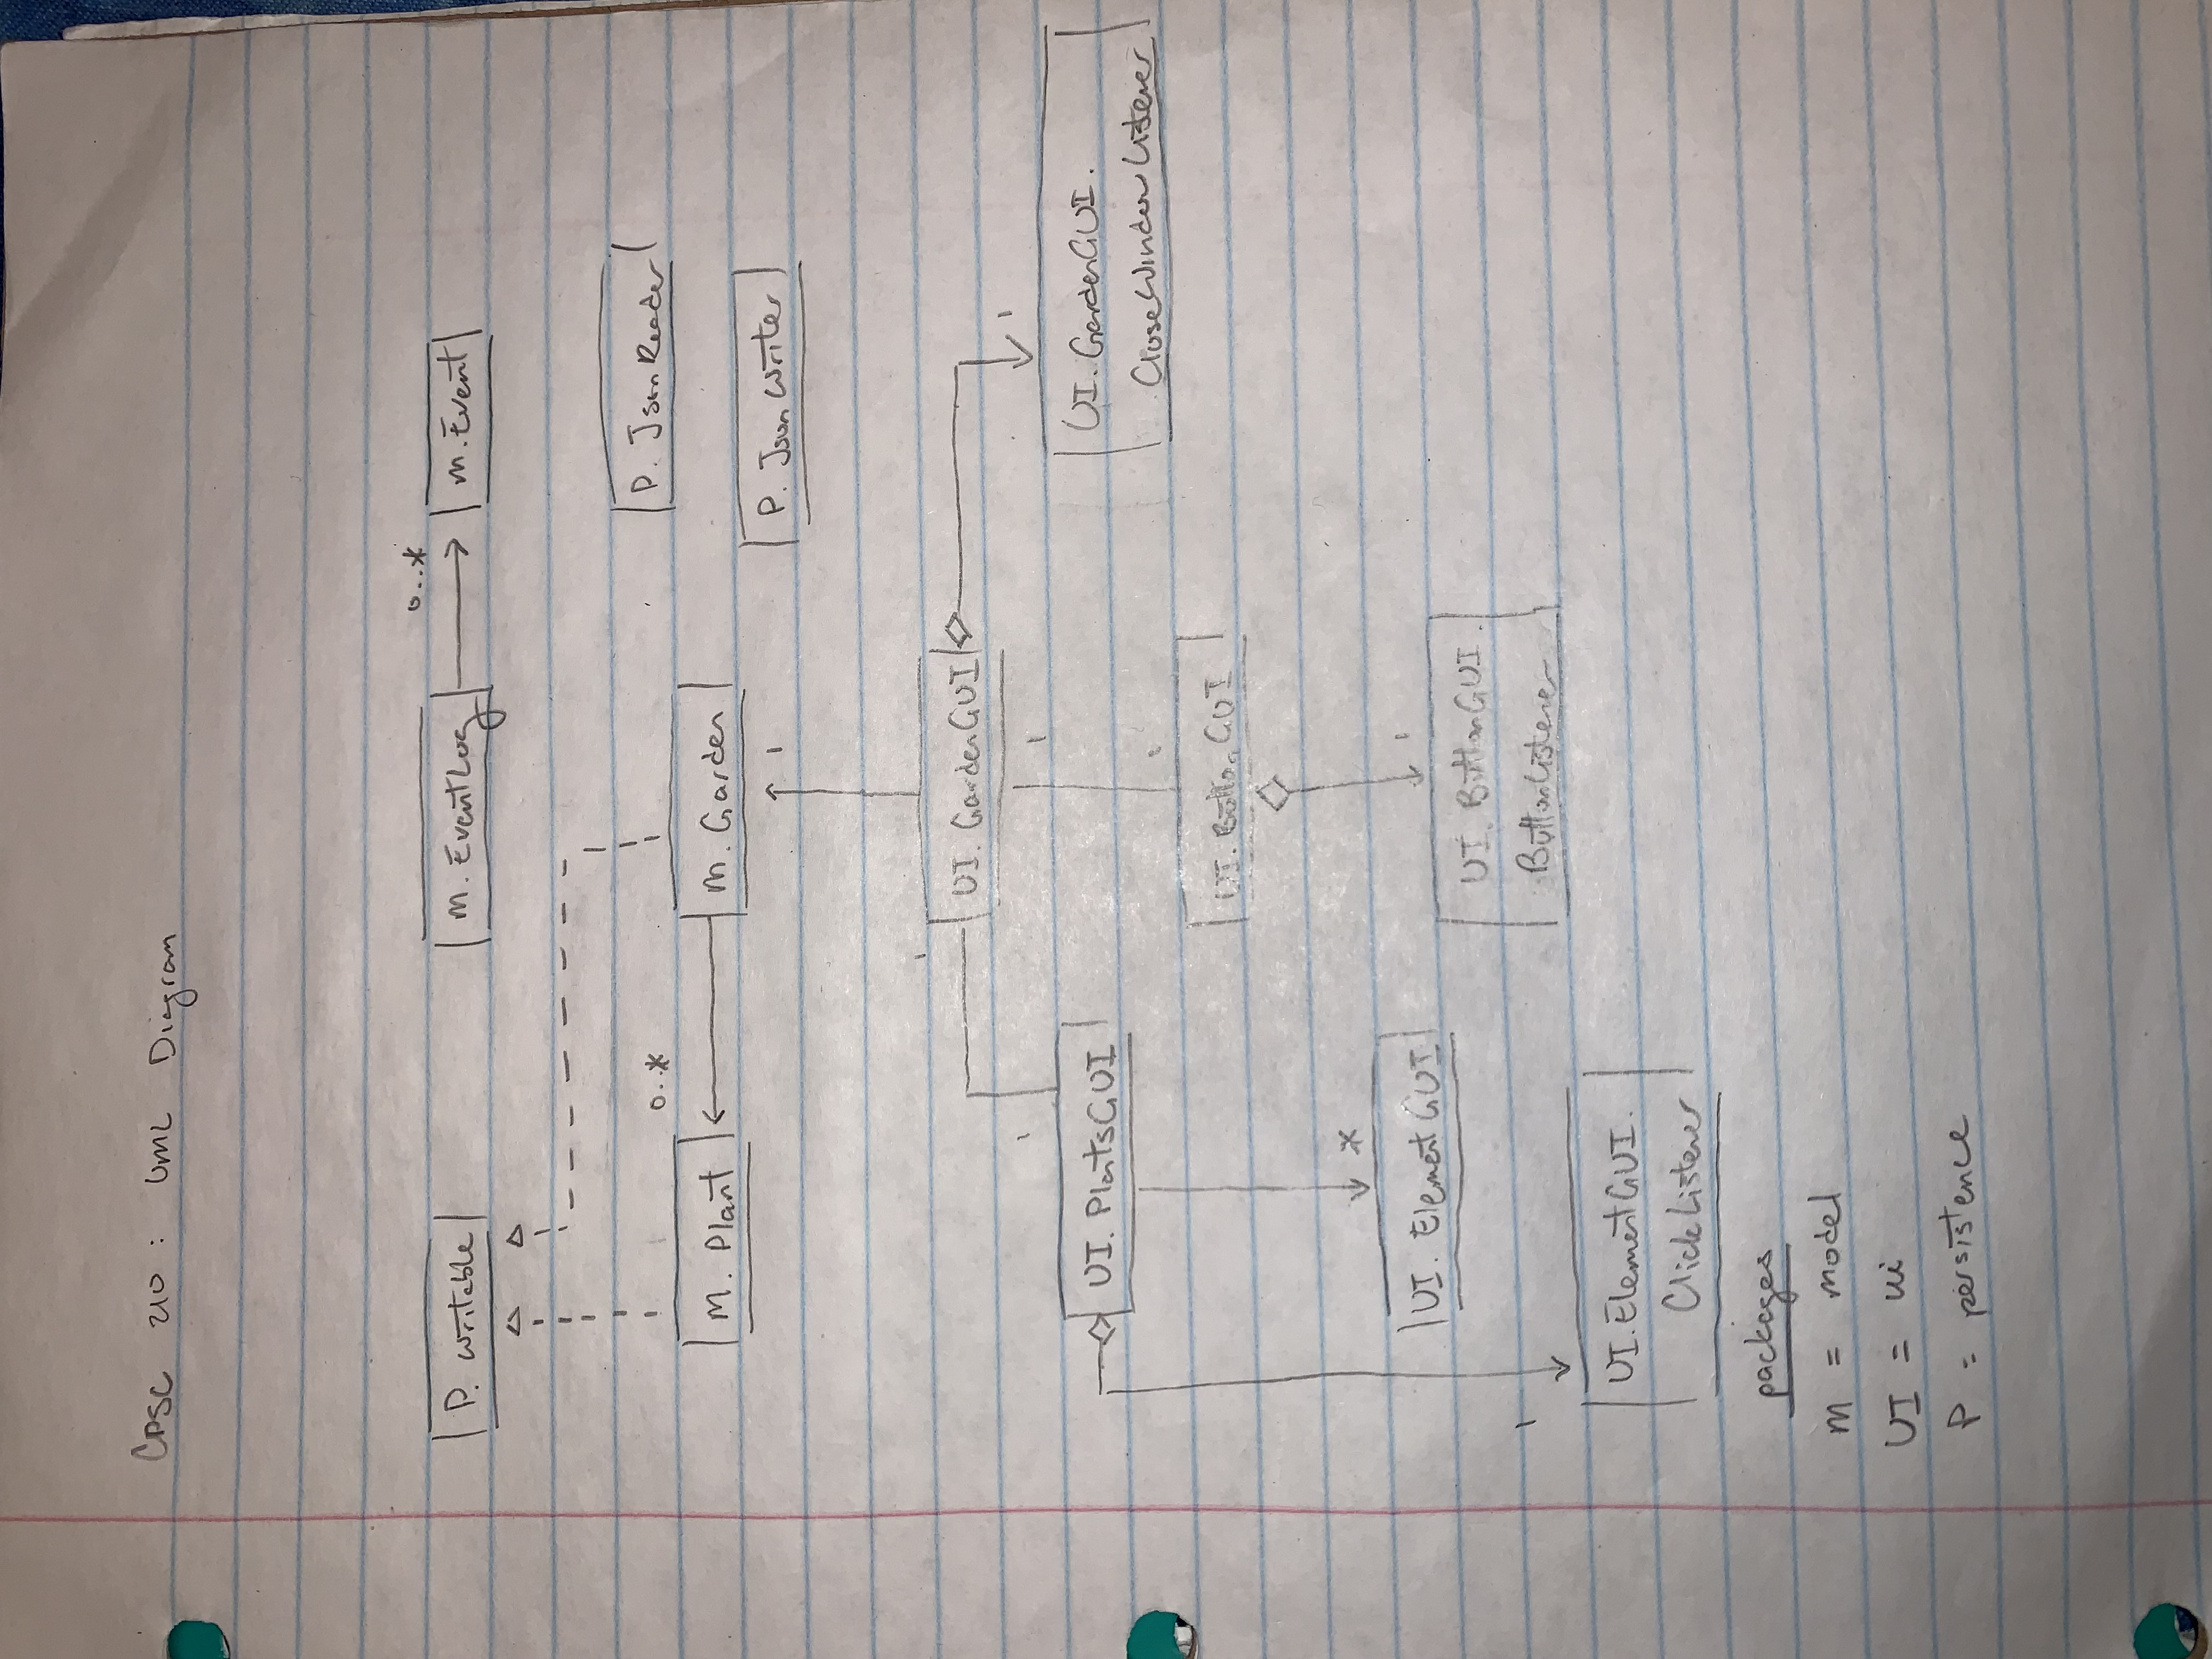 CPSC 210 : UML Diagram
0..*
P. Writable
M. EventLog
M. Event
P. JsonReader
0..*
M. Plant
M. Garden
P. JsonWriter
1
1
UI. GardenGUI
1
1
1
UI. PlantsGUI
UI. GardenGUI.
CloseWindowListener
1
UI. ButtonGUI
*
UI. ElementGUI
1
UI. ButtonGUI.
ButtonListener
1
UI. ElementGUI.
ClickListener
packages
M = model
UI = ui
P = persistence